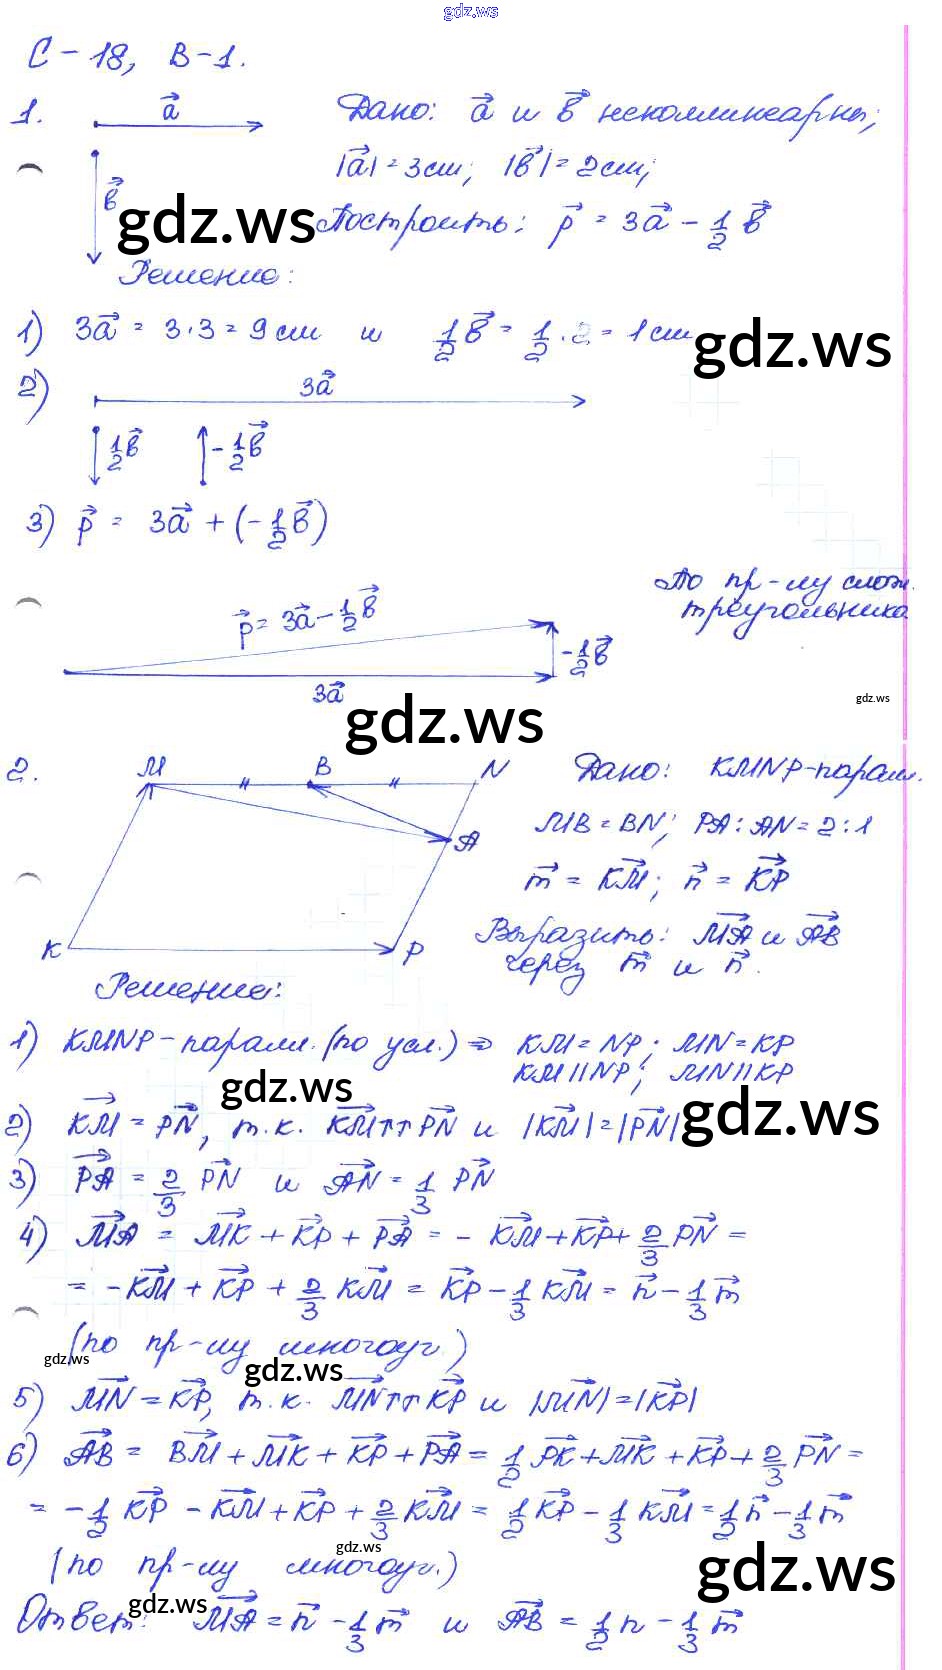 gdz.ws
С-18, В-1.
1. a⃗ Дано: a⃗ и b⃗ неколлинеарны;
|a⃗|=3см; |b⃗|=2см;
b⃗
gdz.ws Построить: p⃗ = 3a⃗ - 1/2 b⃗
Решение:
1) 3a⃗ = 3·3 = 9см и 1/2 b⃗ = 1/2 · 2 = 1см
gdz.ws
2) 3a⃗
1/2 b⃗ -1/2 b⃗
3) p⃗ = 3a⃗ + (-1/2 b⃗)
По пр-лу слож.
треугольника
p⃗ = 3a⃗ - 1/2 b⃗
-1/2 b⃗
3a⃗
gdz.ws
gdz.ws
2. M B N Дано: KMNP-паралл.
MB = BN; PA:AN = 2:1
A
m⃗ = KM⃗; n⃗ = KP⃗
K P Выразить: MA⃗ и AB⃗
через m⃗ и n⃗.
Решение:
1) KMNP - паралл. (по усл.) ⇒ KM = NP; MN = KP
KM || NP; MN || KP
gdz.ws
gdz.ws
2) KM⃗ = PN⃗, т.к. KM⃗↑↑PN⃗ и |KM⃗|=|PN⃗|
3) PA⃗ = 2/3 PN⃗ и AN⃗ = 1/3 PN⃗
4) MA⃗ = MK⃗ + KP⃗ + PA⃗ = - KM⃗ + KP⃗ + 2/3 PN⃗ =
= -KM⃗ + KP⃗ + 2/3 KM⃗ = KP⃗ - 1/3 KM⃗ = n⃗ - 1/3 m⃗
(по пр-лу многоуг.)
gdz.ws
gdz.ws
5) MN⃗ = KP⃗, т.к. MN⃗↑↑KP⃗ и |MN⃗|=|KP⃗|
6) AB⃗ = BM⃗ + MK⃗ + KP⃗ + PA⃗ = 1/2 PK⃗ + MK⃗ + KP⃗ + 2/3 PN⃗ =
= -1/2 KP⃗ - KM⃗ + KP⃗ + 2/3 KM⃗ = 1/2 KP⃗ - 1/3 KM⃗ = 1/2 n⃗ - 1/3 m⃗
gdz.ws
(по пр-лу многоуг.)
gdz.ws
gdz.ws
Ответ: MA⃗ = n⃗ - 1/3 m⃗ и AB⃗ = 1/2 n - 1/3 m⃗